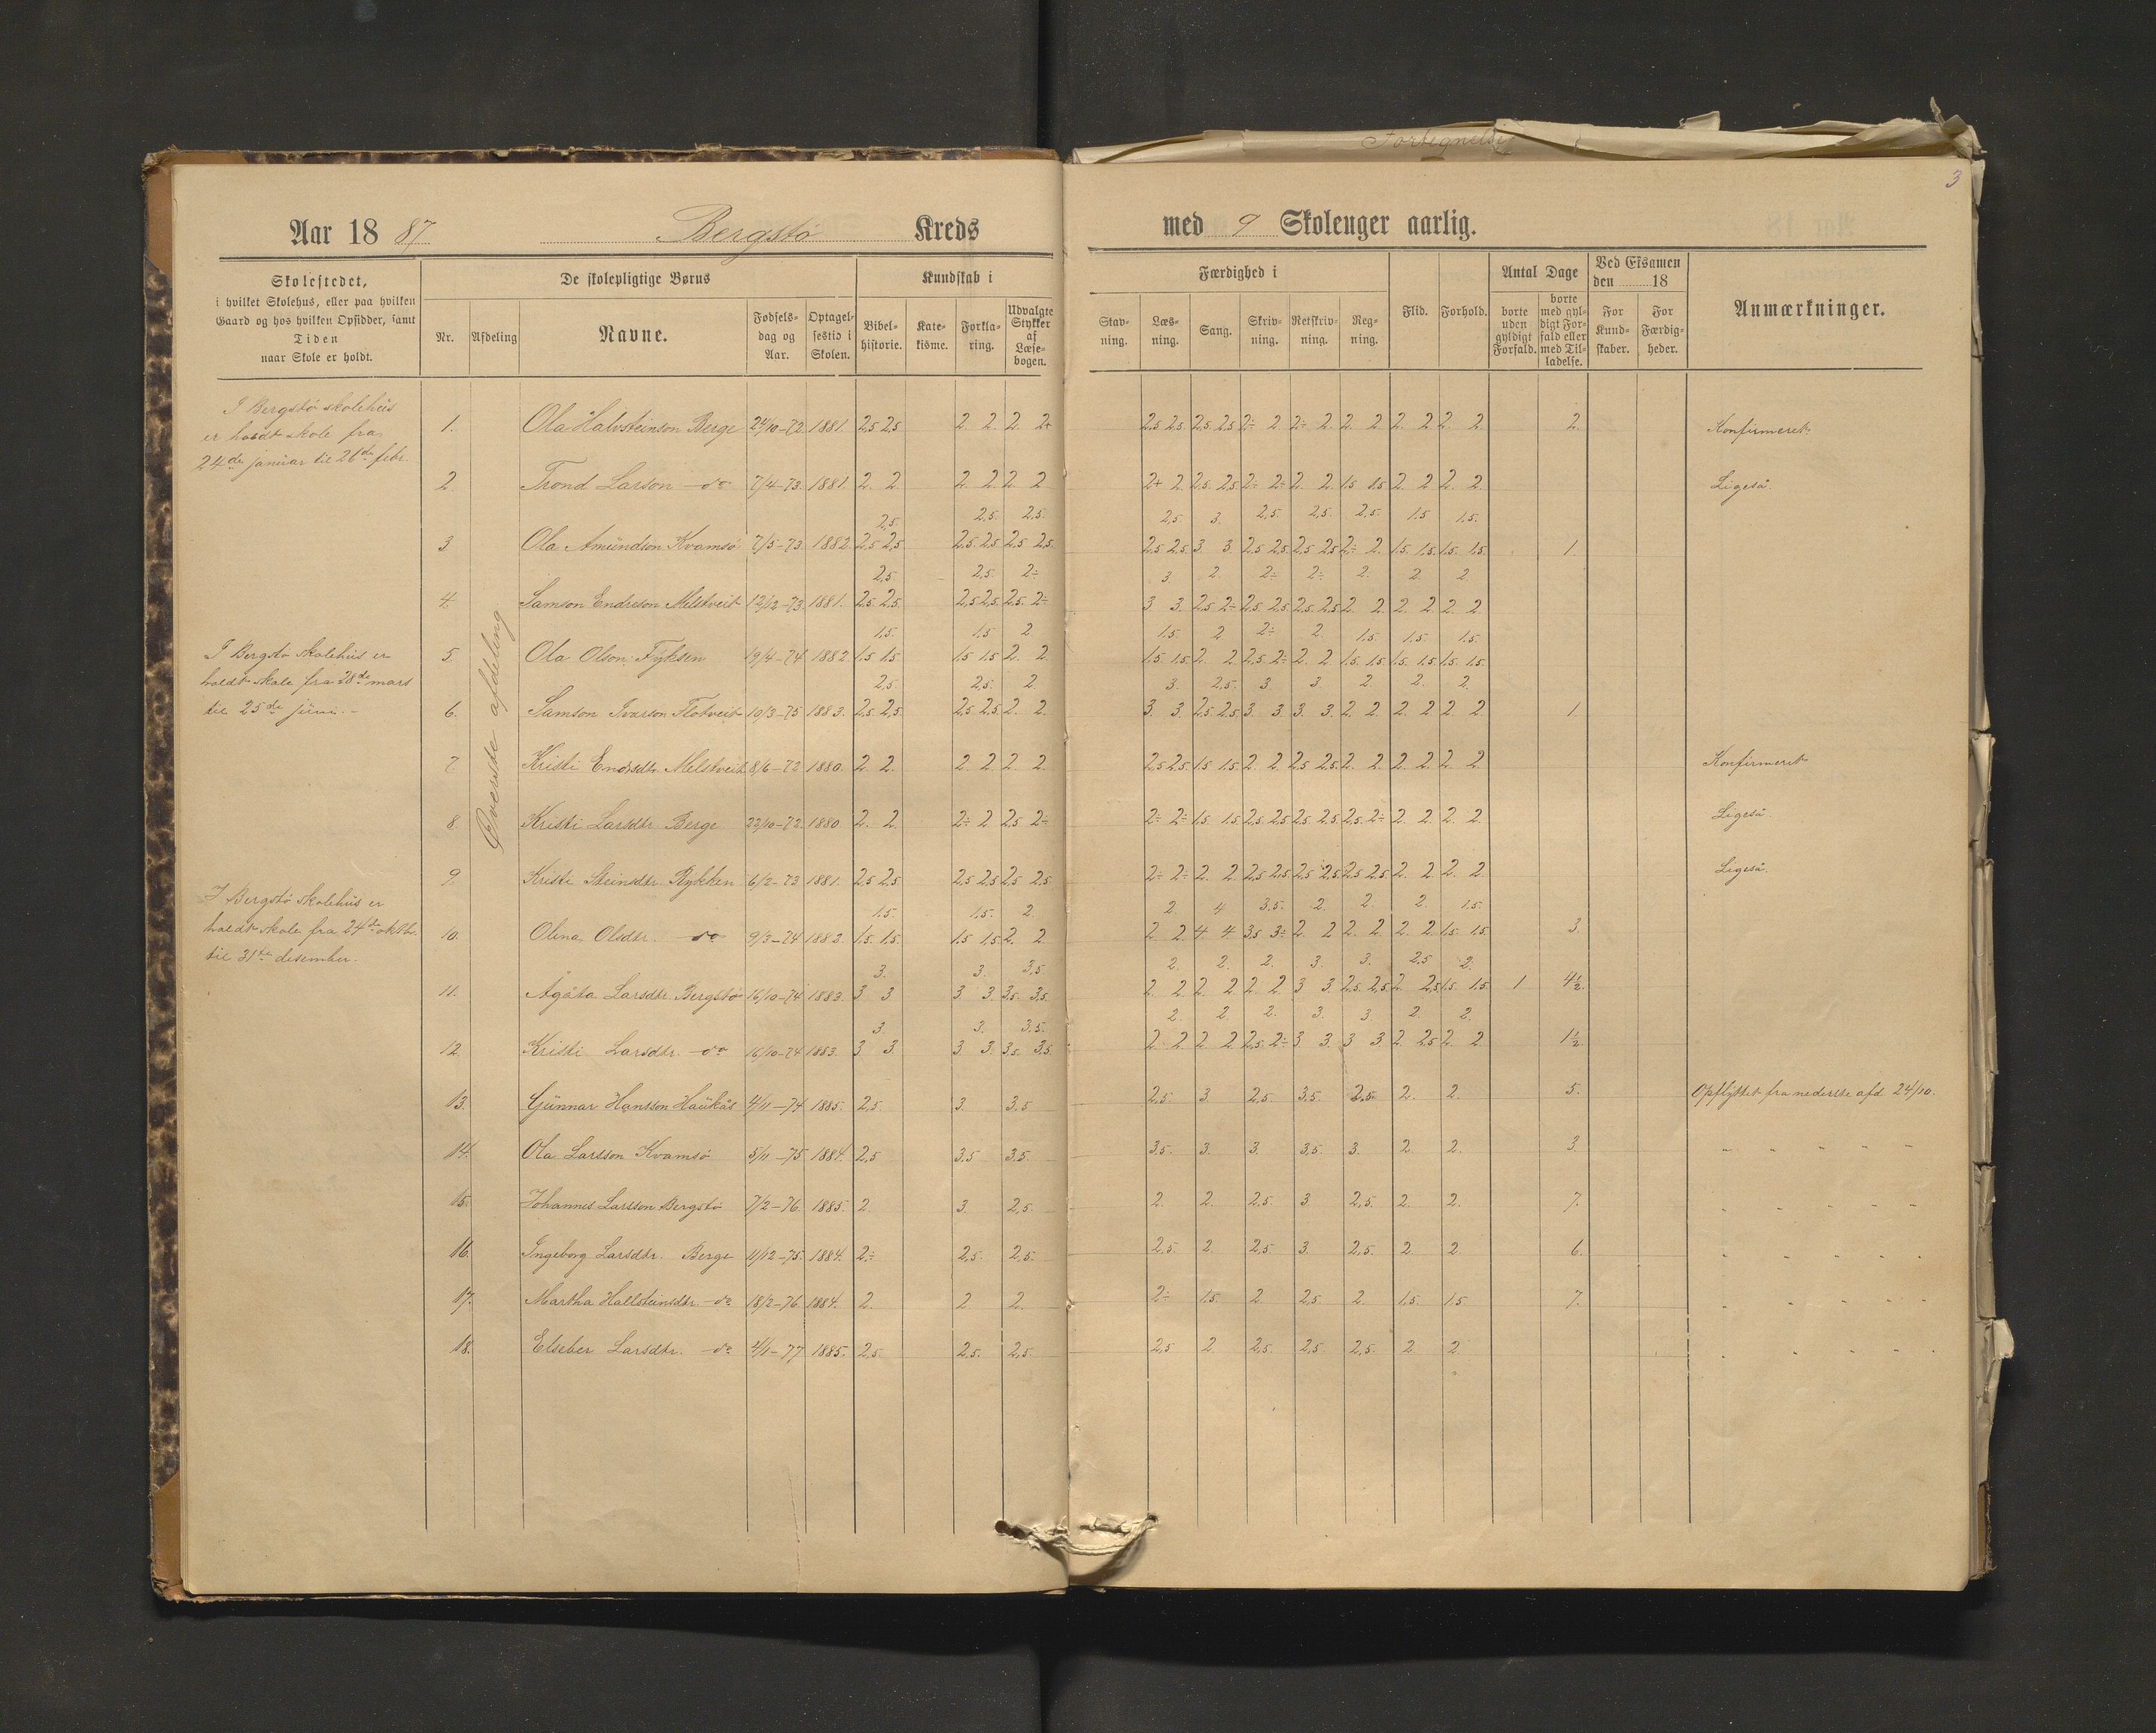 Fortegnelse
3
Aar 1887 Bergstø Kreds med 9 Skoleuger aarlig.
Skolestedet, i hvilket Skolehus, eller paa hvilken Gaard og hos hvilken Opsidder, samt Tiden naar Skole er holdt.
De skolepligtige Børns
Nr. Afdeling Navne. Fødsels-dag og Aar. Optagel-sestid i Skolen.
Kundskab i
Bibel-historie. Kate-kisme. Forkla-ring. Udvalgte Stykker af Læse-bogen.
Færdighed i
Stav-ning. Læs-ning. Sang. Skriv-ning. Retskriv-ning. Reg-ning.
Flid. Forhold.
Antal Dage
borte uden gyldigt Forfald. borte med gyl-digt For-fald eller med Til-ladelse.
Ved Eksamen den 18
For Kund-skaber. For Færdig-heder.
Anmærkninger.
I Bergstø skolehus
er holdt skole fra
24de januar til 26de febr.
I Bergstø skolehus er
holdt skole fra 28de mars
til 25de juni. -
I Bergstø skolehus er
holdt skole fra 24de oktbr.
til 31te desember.
Øverste afdeling
1. Ola Halvsteinson Berge 24/10-72 1881. 2,5 2,5 2 2 2. 2+ 2,5 2,5 2,5 2,5 2÷ 2 2÷ 2. 2. 2 2. 2 2. 2. 2. Konfirmeret.
2 Trond Larson do 7/4-73. 1881. 2. 2 2. 2. 2 2 2+ 2. 2,5. 2,5 2÷ 2÷ 2. 2. 1,5 1,5 2. 2 2. 2. Ligeså.
2,5. 2,5. 2,5. 2,5 3. 2,5. 2,5 2,5. 1,5 1,5.
3 Ola Amundson Kvamsø 7/5-73. 1882. 2,5 2,5 2,5. 2,5 2,5 2,5. 2,5 2,5 3 3. 2,5 2,5 2,5 2,5 2÷ 2. 1,5. 1,5. 1,5. 1,5. 1.
2,5 2,5. 2÷ 3. 2. 2÷ 2÷ 2. 2. 2
4. Samson Endreson Melstveit 12/12-73. 1881. 2,5. 2,5. 2,5 2,5. 2,5. 2÷ 3 3. 2,5 2÷ 2,5. 2,5 2,5. 2,5 2 2. 2. 2 2. 2.
1,5. 1,5 2 1,5. 2 2÷ 2. 1,5. 1,5. 1,5.
5. Ola Olson Fyksen 19/4-74 1882 1,5 1,5 1,5 1,5 2. 2. 1,5. 1,5 2 2 2,5 2÷ 2 2 1,5 1,5. 1,5. 1,5 1,5. 1,5.
2,5. 2,5. 2. 3. 2,5. 3 3 2. 2. 2.
6. Samson Ivarson Flotveit 10/3-75 1883. 2,5 2,5 2,5 2,5 2. 2. 3. 3. 2,5. 2,5 3. 3 3. 3. 2 2. 2. 2 2 2. 1.
7. Kristi Endrsdtr. Melstveit 8/6-72 1880. 2 2. 2. 2 2 2. 2,5 2,5. 1,5 1,5 2. 2. 2,5 2,5 2. 2. 2. 2 2. 2 Konfirmeret
8 Kristi Larsdtr. Berge 22/10-72. 1880. 2. 2. 2÷ 2 2,5 2÷ 2÷ 2÷ 1,5. 1,5 2,5 2,5 2,5 2,5 2,5. 2÷ 2. 2 2. 2. Ligeså.
9. Kristi Steinsdtr. Rykken 6/2-73 1881. 2,5 2,5 2,5 2,5 2,5 2,5 2÷ 2÷ 2 2. 2,5 2,5 2,5 2,5 2,5 2,5 2. 2 2. 2. Ligeså.
1,5. 1,5. 2. 2 4 3,5. 2. 2. 2. 1,5.
10. Olina Olsdtr. do 9/3-74 1882. 1,5. 1,5. 1,5 1,5 2 2 2 2 4 4. 3,5 3÷ 2. 2 2. 2 2. 2 1,5. 1,5. 3.
3. 3. 3,5 2. 2. 2. 3 3. 2,5 2.
11. Ågåta Larsdtr. Bergstø 16/10-74 1883. 3 3 3 3 3,5. 3,5. 2 2 2 2 2 2 3 3 2,5 2,5 2 2,5 1,5 1,5 1 4½.
3. 3. 3,5. 2. 2. 2. 3. 3. 2. 2.
12. Kristi Larsdtr. do 16/10-74 1883. 3 3. 3 3. 3,5. 3,5. 2 2 2 2 2,5 2÷ 3 3. 3 3 2. 2,5 2 2 1½.
13. Gunnar Hansson Haukås 4/11-74 1885. 2,5. 3. 3,5 2,5. 3. 2,5. 3,5. 2,5. 2. 2. 5. Opflyttet fra nederste afd. 24/10.
14. Ola Larsson Kvamsø 5/11-75 1884. 2,5 3,5 3,5. 3,5. 3. 3. 3,5. 3. 2. 2. 3 " " " " "
15. Johannes Larsson Bergstø 7/2-76. 1885. 2. 3. 2,5. 2. 2. 2,5. 3 2,5. 2. 2. 7. " " " " "
16. Ingeborg Larsdtr. Berge 11/12-75. 1884. 2÷ 2,5. 2,5. 2,5. 2. 2,5. 3. 2,5. 2 2. 6. " " " " "
17. Martha Hallsteinsdtr. do 18/2-76. 1884. 2. 2 2. 2÷ 1,5. 2. 2,5 2. 1,5. 1,5 7. " " " " "
18. Elseber Larsdtr. do 4/1-77 1885. 2,5 2,5. 2,5. 2,5 2. 2,5. 2,5 2,5. 2. 2 " " " " "